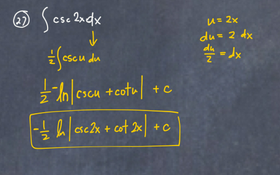 (27) ∫ csc 2x dx
u = 2x
du = 2 dx
du/2 = dx
1/2 ∫ csc u du
1/2 · -ln | csc u + cot u | + c
-1/2 ln | csc 2x + cot 2x | + c